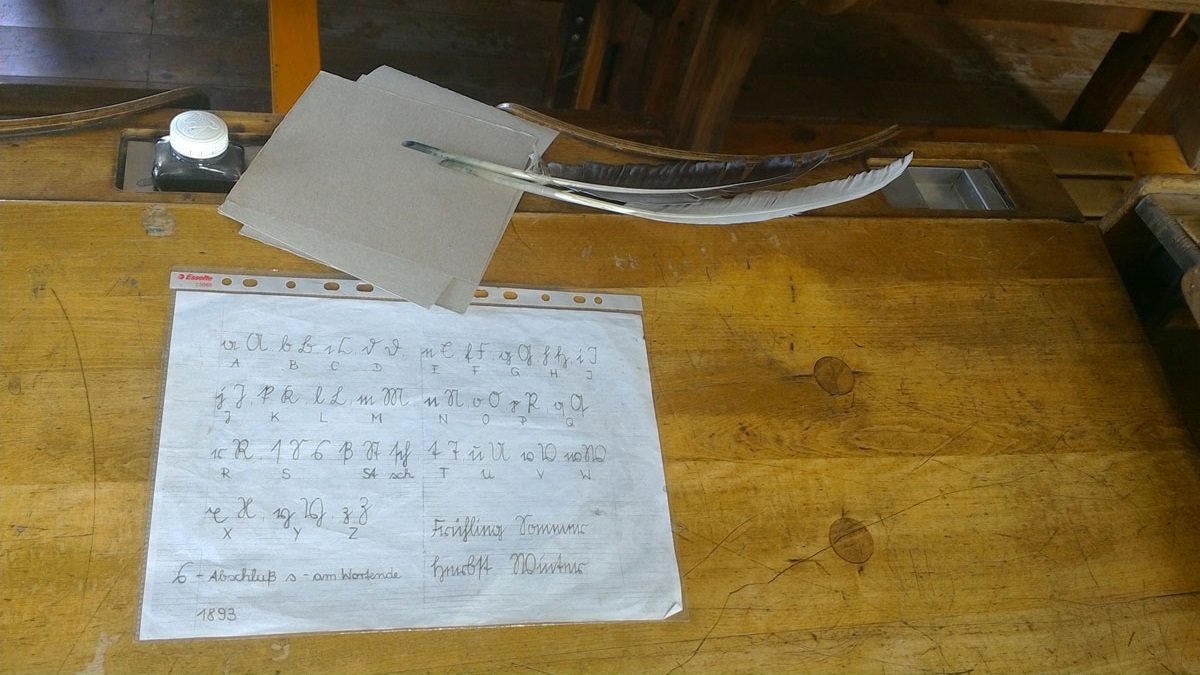 Esselte
a A b B c C d D e E f F g G h H i I
A B C D E F G H I
j J k K l L m M n N o O p P q Q
J K L M N O P Q
r R s S s ß St sch t T u U v V w W
R S St sch T U V W
x X y Y z Z
X Y Z
Frühling Sommer
Herbst Winter
s - Abschluß s - am Wortende
1893